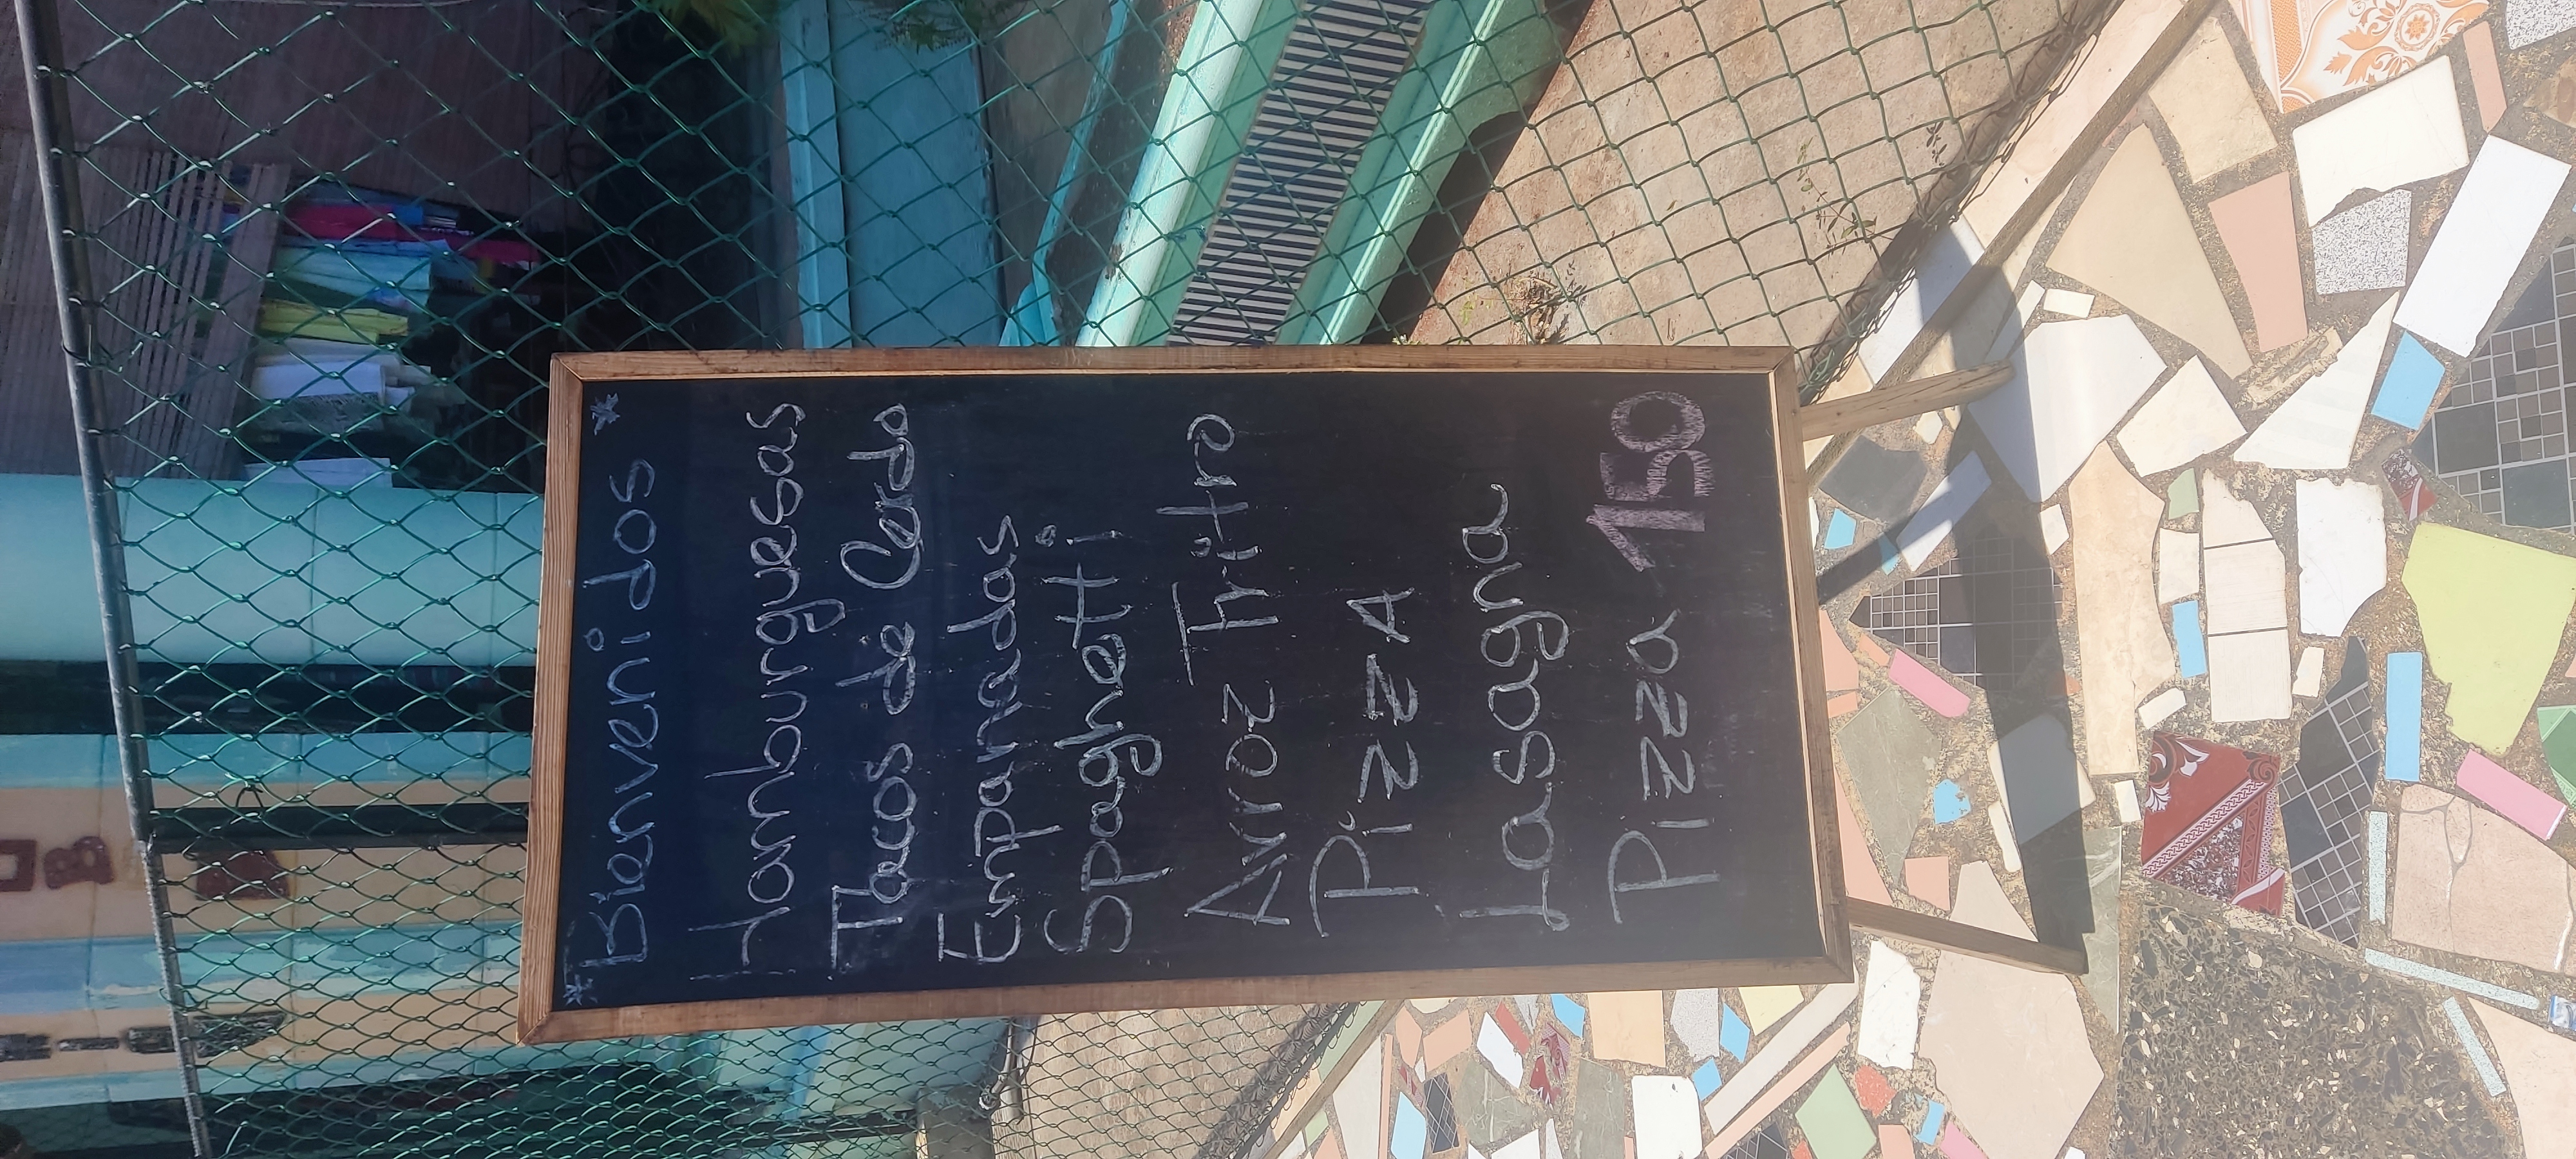 *Bienvenidos*
Hamburguesas
Tacos de Cerdo
Empanadas
Spaghetti
Arroz Fritro
PizzA
Lasagna
Pizza 150